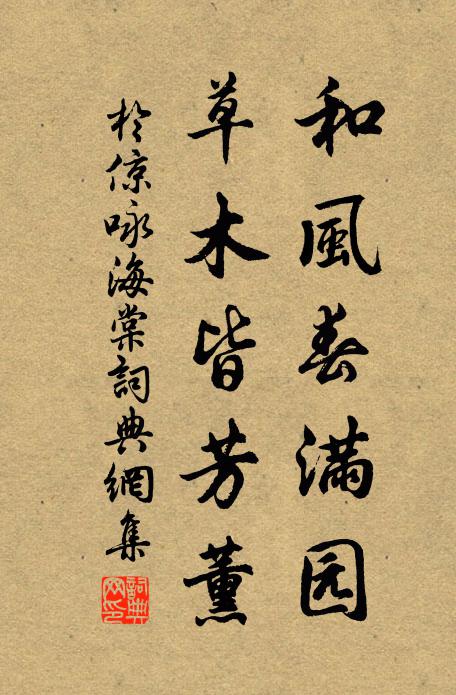 和風春滿园
草木皆芳薰
於倞咏海棠詞典網集
詞典网印